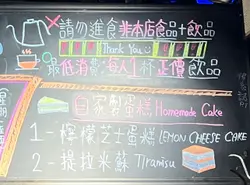 請勿進食非本店食品+飲品
Thank You
最低消費每人1杯正價飲品
自家製蛋糕 Homemade Cake
1-檸檬芝士蛋糕 LEMON CHEESE CAKE
2-提拉米蘇 Tiramisu